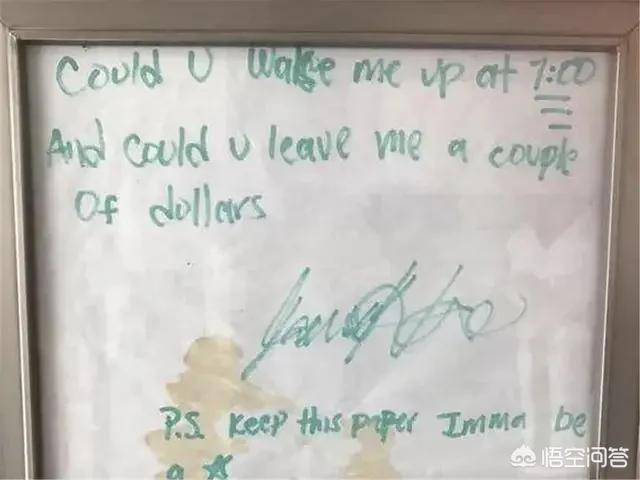 Could U Wake me up at 7:00
And could u leave me a couple
Of dollars
P.S. Keep this paper Imma be
a ☆
悟空问答